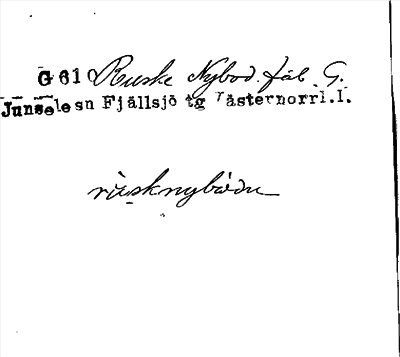 G 61 Ruske Nybod. fäb. G.
Junsele sn Fjällsjö tg Västernorrl.l.
rùsknybòdn